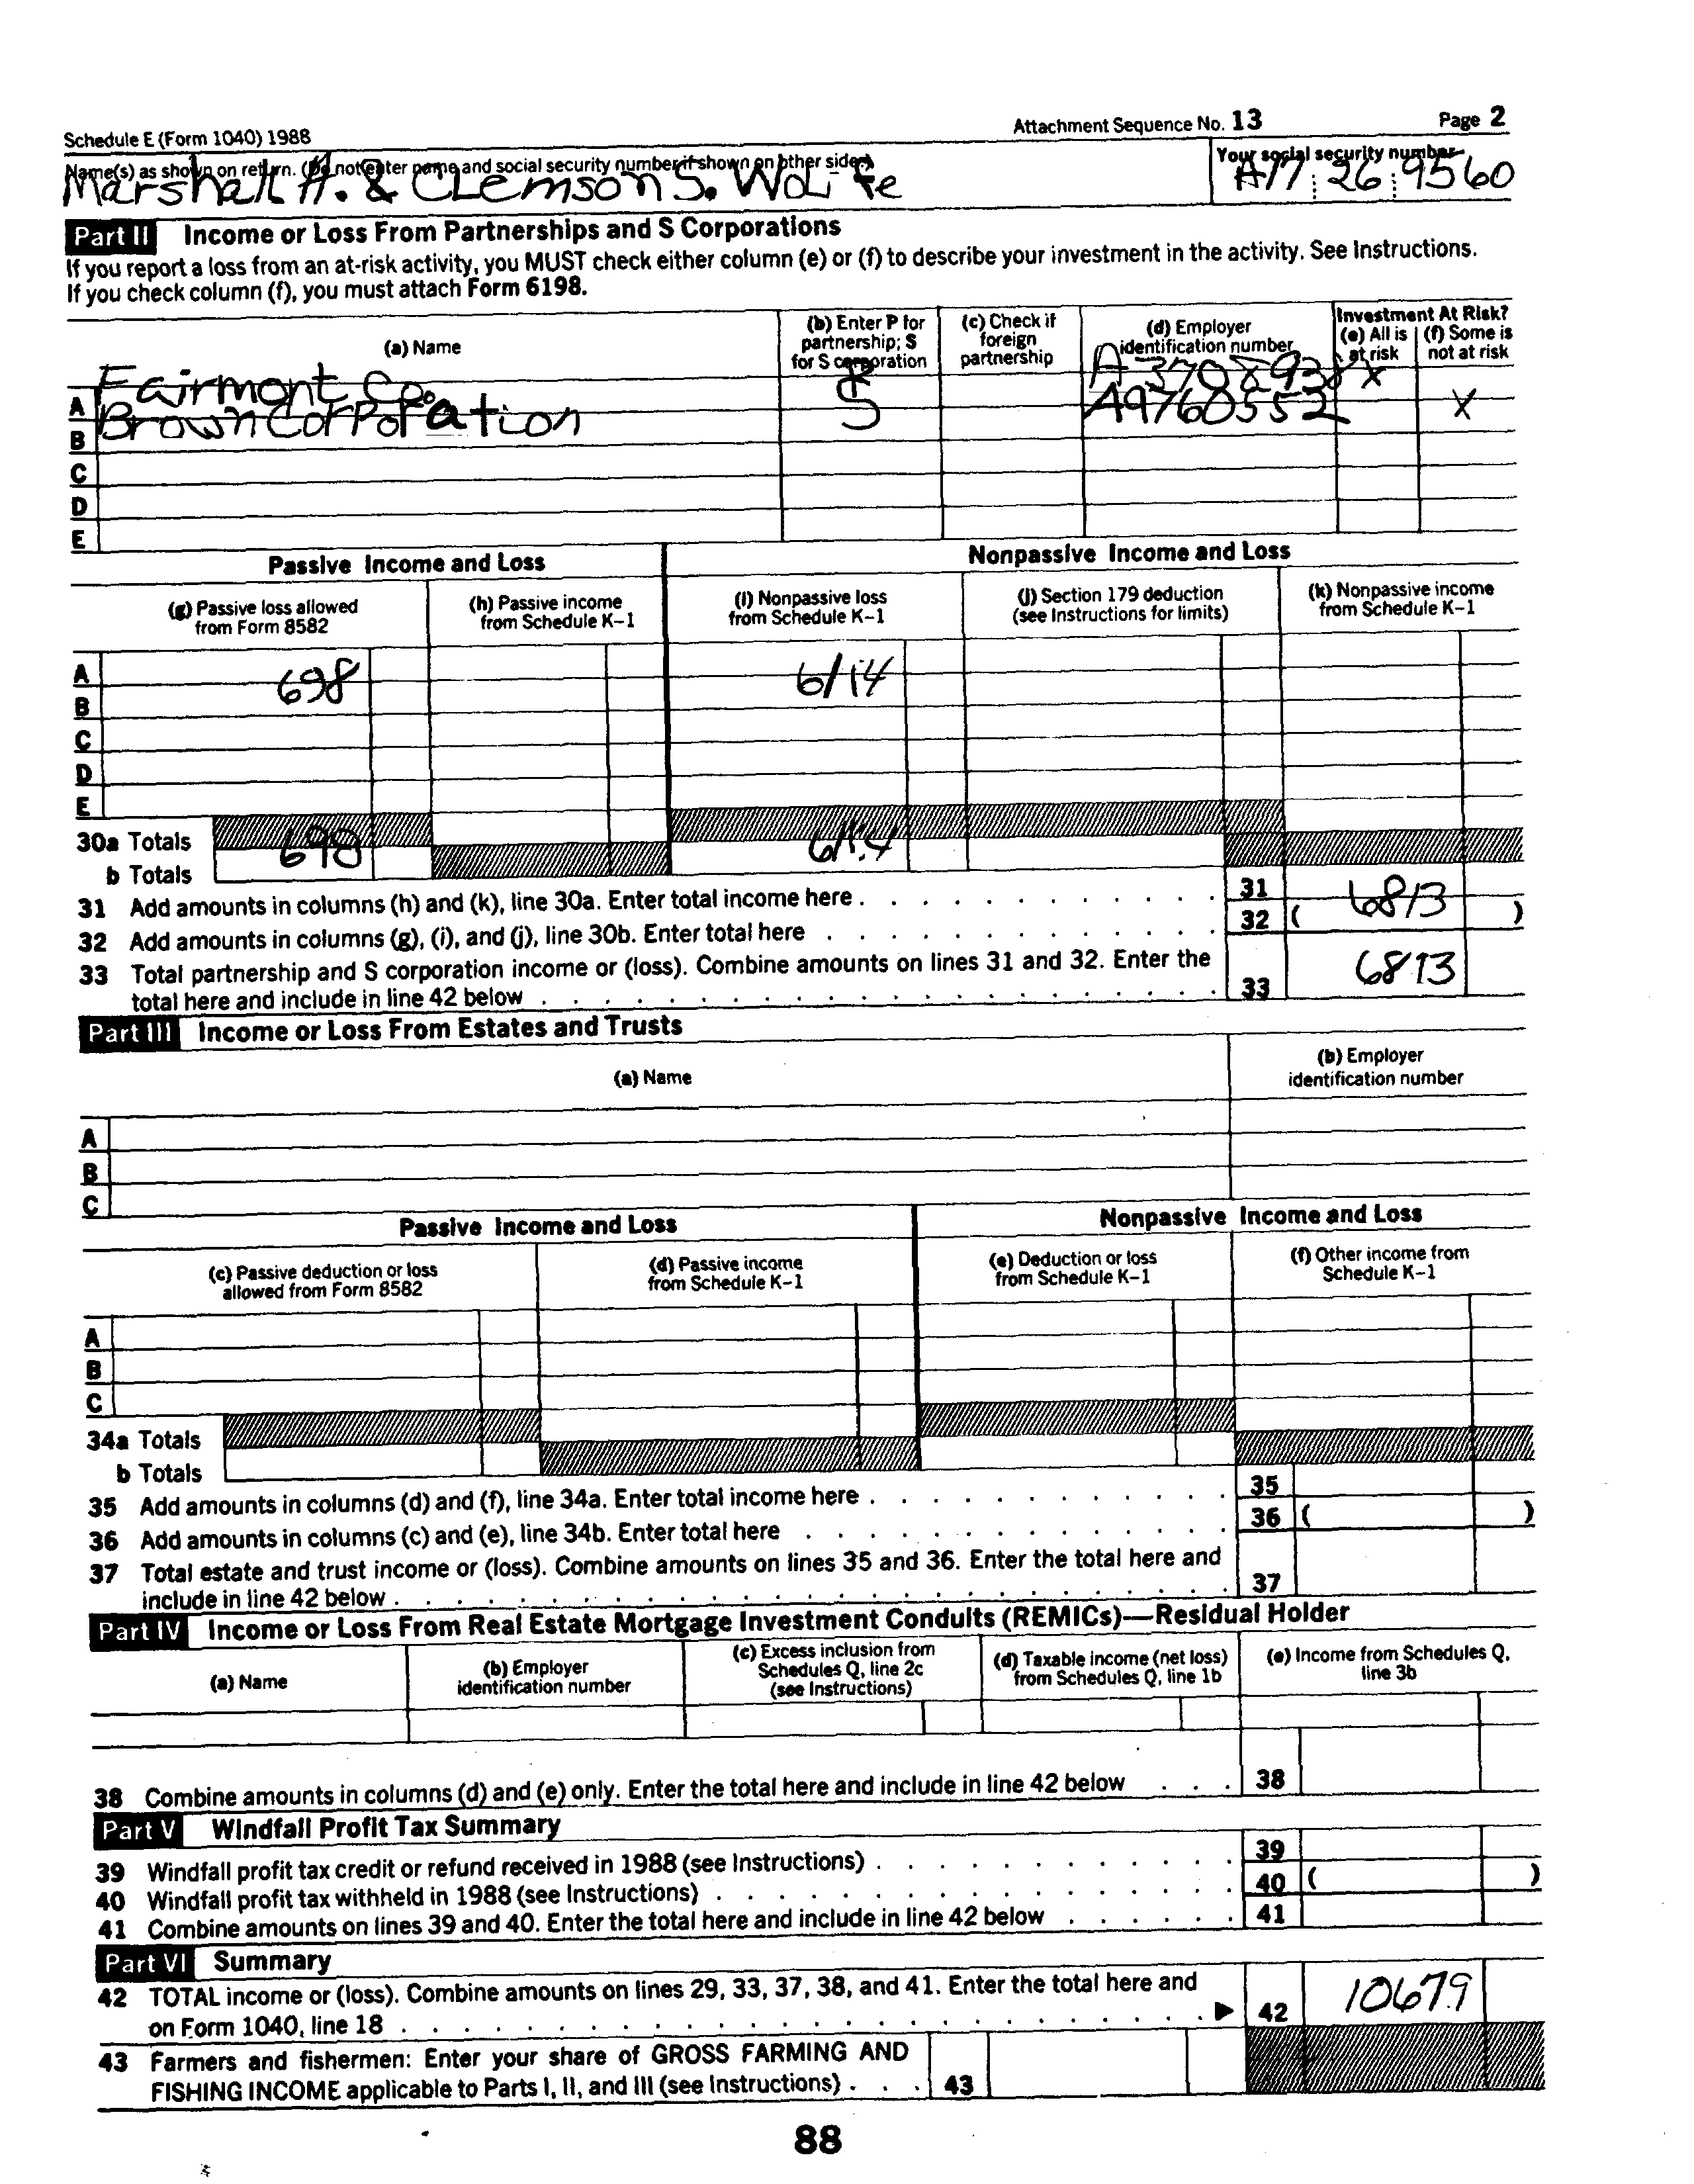 Schedule E (Form 1040) 1988 Attachment Sequence No. 13 Page 2
Name(s) as shown on return. (Do not enter name and social security number if shown on other side.) Your social security number
Marshall H. & Clemson S. Wolfe A17 26 9560
Part II Income or Loss From Partnerships and S Corporations
If you report a loss from an at-risk activity, you MUST check either column (e) or (f) to describe your investment in the activity. See Instructions.
If you check column (f), you must attach Form 6198.
(a) Name
(b) Enter P for partnership; S for S corporation
(c) Check if foreign partnership
(d) Employer identification number
Investment At Risk?
(e) All is at risk
(f) Some is not at risk
A Fairmont Co. X
B Brown Corporation S A9760552 X
C
D
E
Passive Income and Loss Nonpassive Income and Loss
(g) Passive loss allowed from Form 8582
(h) Passive income from Schedule K-1
(i) Nonpassive loss from Schedule K-1
(j) Section 179 deduction (see Instructions for limits)
(k) Nonpassive income from Schedule K-1
A 698 6114
B
C
D
E
30a Totals
b Totals 698 6114
31 Add amounts in columns (h) and (k), line 30a. Enter total income here 31
32 Add amounts in columns (g), (i), and (j), line 30b. Enter total here 32 ( 6813 )
33 Total partnership and S corporation income or (loss). Combine amounts on lines 31 and 32. Enter the
total here and include in line 42 below 33 6813
Part III Income or Loss From Estates and Trusts
(a) Name
(b) Employer identification number
A
B
C
Passive Income and Loss Nonpassive Income and Loss
(c) Passive deduction or loss allowed from Form 8582
(d) Passive income from Schedule K-1
(e) Deduction or loss from Schedule K-1
(f) Other income from Schedule K-1
A
B
C
34a Totals
b Totals
35 Add amounts in columns (d) and (f), line 34a. Enter total income here 35
36 Add amounts in columns (c) and (e), line 34b. Enter total here 36 ( )
37 Total estate and trust income or (loss). Combine amounts on lines 35 and 36. Enter the total here and
include in line 42 below 37
Part IV Income or Loss From Real Estate Mortgage Investment Conduits (REMICs)—Residual Holder
(a) Name
(b) Employer identification number
(c) Excess inclusion from Schedules Q, line 2c (see Instructions)
(d) Taxable income (net loss) from Schedules Q, line 1b
(e) Income from Schedules Q, line 3b
38 Combine amounts in columns (d) and (e) only. Enter the total here and include in line 42 below 38
Part V Windfall Profit Tax Summary
39 Windfall profit tax credit or refund received in 1988 (see Instructions) 39
40 Windfall profit tax withheld in 1988 (see Instructions) 40 ( )
41 Combine amounts on lines 39 and 40. Enter the total here and include in line 42 below 41
Part VI Summary
42 TOTAL income or (loss). Combine amounts on lines 29, 33, 37, 38, and 41. Enter the total here and
on Form 1040, line 18 42 10679
43 Farmers and fishermen: Enter your share of GROSS FARMING AND
FISHING INCOME applicable to Parts I, II, and III (see Instructions) 43
88